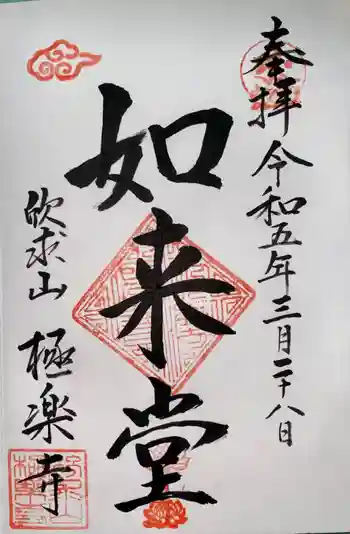 奉拝 令和五年三月二十八日
如来堂
欣求山 極楽寺